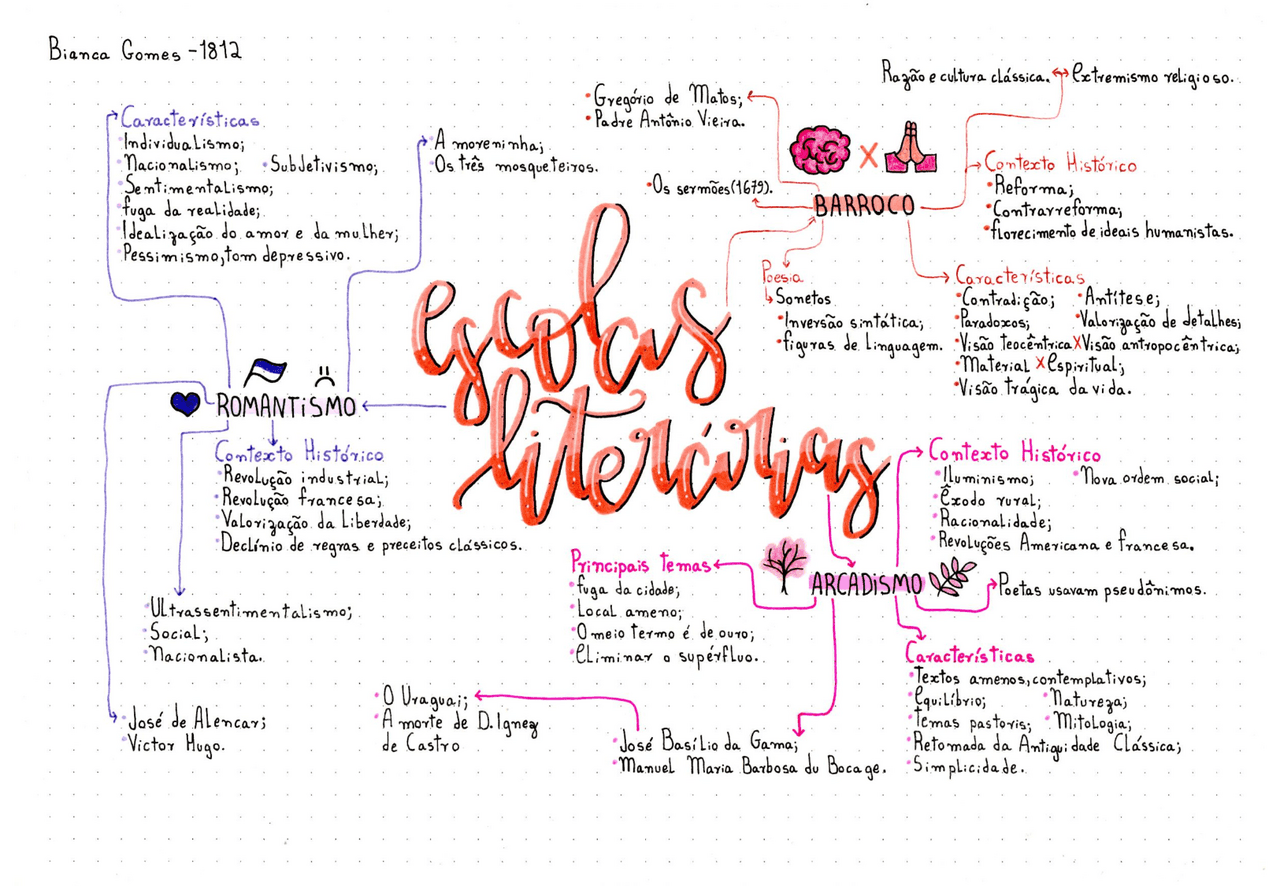 Bianca Gomes - 1812
escolas
literárias
BARROCO
Razão e cultura clássica. ↔ extremismo religioso.
• Gregório de Matos;
• Padre Antônio Vieira.
• Os sermões (1679).
Contexto Histórico
• Reforma;
• Contrarreforma;
• florecimento de ideais humanistas.
Poesia
Sonetos
• Inversão sintática;
• figuras de linguagem.
Características
• Contradição; • Antítese;
• Paradoxos; • Valorização de detalhes;
• Visão teocêntrica X Visão antropocêntrica;
• Material X Espiritual;
• Visão trágica da vida.
ROMANTISMO
Características
• Individualismo;
• Nacionalismo; • Subjetivismo;
• Sentimentalismo;
• fuga da realidade;
• Idealização do amor e da mulher;
• Pessimismo, tom depressivo.
• A moreninha;
• Os três mosqueteiros.
Contexto Histórico
• Revolução industrial;
• Revolução francesa;
• Valorização da Liberdade;
• Declínio de regras e preceitos clássicos.
• Ultrassentimentalismo;
• Social;
• Nacionalista.
• José de Alencar;
• Victor Hugo.
ARCADISMO
Contexto Histórico
• Iluminismo; • Nova ordem social;
• Êxodo rural;
• Racionalidade;
• Revoluções Americana e francesa.
• Poetas usavam pseudônimos.
Principais temas
• fuga da cidade;
• Local ameno;
• O meio termo é de ouro;
• Eliminar o supérfluo.
Características
• Textos amenos, contemplativos;
• Equilíbrio; • Natureza;
• Temas pastoris; • Mitologia;
• Retomada da Antiguidade Clássica;
• Simplicidade.
• José Basílio da Gama;
• Manuel Maria Barbosa du Bocage.
• O Uraguai;
• A morte de D. Ignez
de Castro